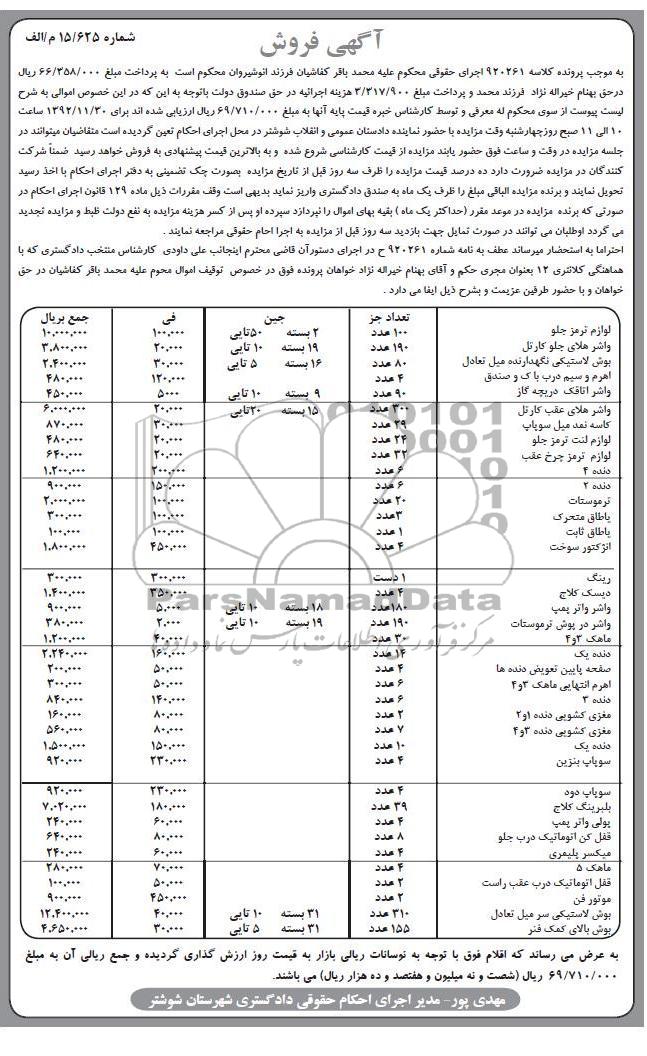 آگهی فروش
شماره ۱۵/۶۲۵ م/الف
به موجب پرونده کلاسه ۹۲۰۲۶۱ اجرای حقوقی محکوم علیه محمد باقر کفاشیان فرزند انوشیروان محکوم است به پرداخت مبلغ ۶۶/۳۵۸/۰۰۰ ریال
درحق بهنام خیراله نژاد فرزند محمد و پرداخت مبلغ ۳/۳۱۷/۹۰۰ هزینه اجرائیه در حق صندوق دولت باتوجه به این که در این خصوص اموالی به شرح
لیست پیوست از سوی محکوم له معرفی و توسط کارشناس خبره قیمت پایه آنها به مبلغ ۶۹/۷۱۰/۰۰۰ ریال ارزیابی شده اند برای ۱۳۹۲/۱۱/۳۰ ساعت
۱۰ الی ۱۱ صبح روزچهارشنبه وقت مزایده با حضور نماینده دادستان عمومی و انقلاب شوشتر در محل اجرای احکام تعین گردیده است متقاضیان میتوانند در
جلسه مزایده در وقت و ساعت فوق حضور یابند مزایده از قیمت کارشناسی شروع شده و به بالاترین قیمت پیشنهادی به فروش خواهد رسید ضمناً شرکت
کنندگان در مزایده ضرورت دارد ده درصد قیمت مزایده را ظرف سه روز قبل از تاریخ مزایده بصورت چک تضمینی به دفتر اجرای احکام با اخذ رسید
تحویل نمایند و برنده مزایده الباقی مبلغ را ظرف یک ماه به صندق دادگستری واریز نماید بدیهی است وقف مقررات ذیل ماده ۱۲۹ قانون اجرای احکام در
صورتی که برنده مزایده در موعد مقرر (حداکثر یک ماه ) بقیه بهای اموال را نپردازد سپرده او پس از کسر هزینه مزایده به نفع دولت ظبط و مزایده تجدید
می گردد اوطلبان می توانند در صورت تمایل جهت بازدید سه روز قبل از مزایده به اجرا احام حقوقی مراجعه نمایند .
احتراما به استحضار میرساند عطف به نامه شماره ۹۲۰۲۶۱ ح در اجرای دستورآن قاضی محترم اینجانب علی داودی کارشناس منتخب دادگستری که با
هماهنگی کلانتری ۱۲ بعنوان مجری حکم و آقای بهنام خیراله نژاد خواهان پرونده فوق در خصوص توقیف اموال محوم علیه محمد باقر کفاشیان در حق
خواهان و با حضور طرفین عزیمت و بشرح ذیل ایفا می دارد .
تعداد جز جین فی جمع بریال
لوازم ترمز جلو ۱۰۰ عدد ۲ بسته ۵۰تایی ۱۰۰,۰۰۰ ۱۰,۰۰۰,۰۰۰
واشر هلای جلو کارتل ۱۹۰ عدد ۱۹ بسته ۱۰ تایی ۲۰,۰۰۰ ۳,۸۰۰,۰۰۰
بوش لاستیکی نگهدارنده میل تعادل ۸۰ عدد ۱۶ بسته ۵ تایی ۳۰,۰۰۰ ۲,۴۰۰,۰۰۰
اهرم و سیم درب باک و صندق ۴ عدد ۱۲۰,۰۰۰ ۴۸۰,۰۰۰
واشر اتاقک دریچه گاز ۹۰ عدد ۹ بسته ۱۰ تایی ۵۰۰۰ ۴۵۰,۰۰۰
واشر هلای عقب کارتل ۳۰۰ عدد ۱۵ بسته ۲۰تایی ۲۰,۰۰۰ ۶,۰۰۰,۰۰۰
کاسه نمد میل سوپاپ ۲۹ عدد ۳۰,۰۰۰ ۸۷۰,۰۰۰
لوازم لنت ترمز جلو ۲۴ عدد ۲۰,۰۰۰ ۴۸۰,۰۰۰
لوازم ترمز چرخ عقب ۳۲ عدد ۲۰,۰۰۰ ۶۴۰,۰۰۰
دنده ۴ ۶ عدد ۲۰۰,۰۰۰ ۱,۲۰۰,۰۰۰
دنده ۲ ۶ عدد ۱۵۰,۰۰۰ ۹۰۰,۰۰۰
ترموستات ۲۰ عدد ۱۰۰,۰۰۰ ۲,۰۰۰,۰۰۰
یاطاق متحرک ۳عدد ۱۰۰,۰۰۰ ۳۰۰,۰۰۰
یاطاق ثابت ۱ عدد ۱۰۰,۰۰۰ ۱۰۰,۰۰۰
انژکتور سوخت ۴ عدد ۴۵۰,۰۰۰ ۱,۸۰۰,۰۰۰
رینگ ۱ دست ۳۰۰,۰۰۰ ۳۰۰,۰۰۰
دیسک کلاج ۴ عدد ۳۵۰,۰۰۰ ۱,۴۰۰,۰۰۰
واشر واتر پمپ ۱۸۰عدد ۱۸ بسته ۱۰ تایی ۵,۰۰۰ ۹۰۰,۰۰۰
واشر در پوش ترموستات ۱۹۰ عدد ۱۹ بسته ۱۰ تایی ۲,۰۰۰ ۳۸۰,۰۰۰
ماهک ۳و۴ ۳۰ عدد ۴۰,۰۰۰ ۱,۲۰۰,۰۰۰
دنده یک ۱۴ عدد ۱۶۰,۰۰۰ ۲,۲۴۰,۰۰۰
صفحه پایین تعویض دنده ها ۴ عدد ۵۰,۰۰۰ ۲۰۰,۰۰۰
اهرم انتهایی ماهک ۳و۴ ۶ عدد ۵۰,۰۰۰ ۳۰۰,۰۰۰
دنده ۳ ۶ عدد ۱۴۰,۰۰۰ ۸۴۰,۰۰۰
مغزی کشویی دنده ۱و۲ ۲ عدد ۸۰,۰۰۰ ۱۶۰,۰۰۰
مغزی کشویی دنده ۳و۴ ۷ عدد ۸۰,۰۰۰ ۵۶۰,۰۰۰
دنده یک ۱۰ عدد ۱۵۰,۰۰۰ ۱,۵۰۰,۰۰۰
سوپاپ بنزین ۴ عدد ۲۳۰,۰۰۰ ۹۲۰,۰۰۰
سوپاپ دود ۴ عدد ۲۳۰,۰۰۰ ۹۲۰,۰۰۰
بلبرینگ کلاج ۳۹ عدد ۱۸۰,۰۰۰ ۷,۰۲۰,۰۰۰
پولی واتر پمپ ۴ عدد ۶۰,۰۰۰ ۲۴۰,۰۰۰
قفل کن اتوماتیک درب جلو ۸ عدد ۸۰,۰۰۰ ۶۴۰,۰۰۰
میکسر پلیمری ۴ عدد ۶۰,۰۰۰ ۲۴۰,۰۰۰
ماهک ۵ ۴ عدد ۷۰,۰۰۰ ۲۸۰,۰۰۰
قفل اتوماتیک درب عقب راست ۲ عدد ۵۰,۰۰۰ ۱۰۰,۰۰۰
موتور فن ۲ عدد ۴۵۰,۰۰۰ ۹۰۰,۰۰۰
بوش لاستیکی سر میل تعادل ۳۱۰ عدد ۳۱ بسته ۱۰ تایی ۴۰,۰۰۰ ۱۲,۴۰۰,۰۰۰
بوش بالای کمک فنر ۱۵۵ عدد ۳۱ بسته ۵ تایی ۳۰,۰۰۰ ۴,۶۵۰,۰۰۰
ParsNamadData
مرکز فرآوری اطلاعات پارس نماد داده
به عرض می رساند که اقلام فوق با توجه به نوسانات ریالی بازار به قیمت روز ارزش گذاری گردیده و جمع ریالی آن به مبلغ
۶۹/۷۱۰/۰۰۰ ریال (شصت و نه میلیون و هفتصد و ده هزار ریال) می باشند.
مهدی پور- مدیر اجرای احکام حقوقی دادگستری شهرستان شوشتر